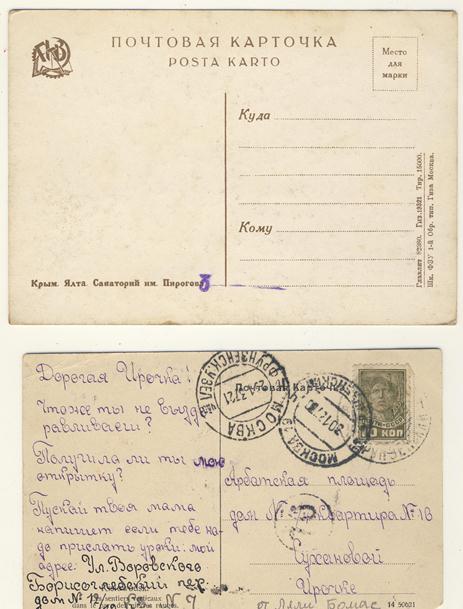 ПОЧТОВАЯ КАРТОЧКА
POSTA KARTO
Место
для
марки
Куда
Кому
Крым. Ялта. Санаторий им. Пирогова
3
Главлит 82360. Гиз. Тир. 15000.
Шк. ФЗУ 1-й Обр. тип. Гиза Москва.
Почтовая Карточка
МОСКВА
МОСКВА
КОП
Дорогая Ирочка!
Что же ты не выздо
равливаеш?
Получила ли ты мою
открытку?
Пускай твоя мама
напишет если тебе на-
до прислать уроки: мой
адрес: Ул. Воровского
Борисоглебский пер.
дом N кв N 7
Арбатская площадь
дом № квартира № 18
Сухановой
Ирочке
от Ляли Бомас
14 50031